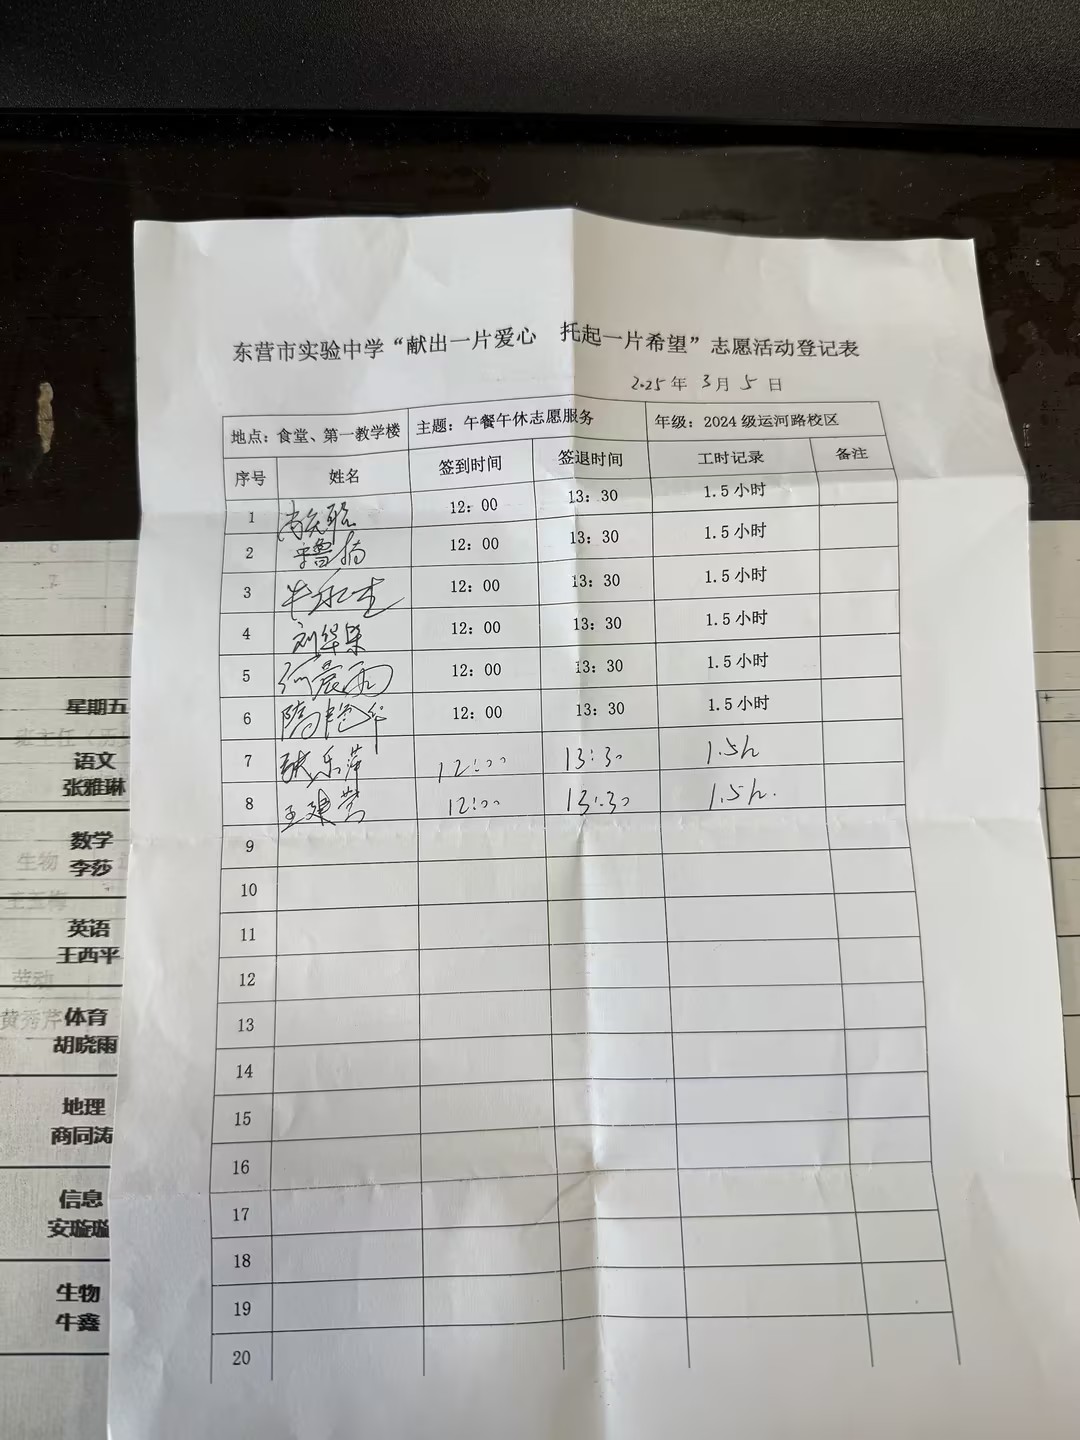 东营市实验中学“献出一片爱心 托起一片希望”志愿活动登记表
2025年 3月 5日
地点：食堂、第一教学楼 主题：午餐午休志愿服务 年级：2024级运河路校区
序号 姓名 签到时间 签退时间 工时记录 备注
1 12：00 13：30 1.5小时
2 12：00 13：30 1.5小时
3 12：00 13：30 1.5小时
4 刘华杲 12：00 13：30 1.5小时
5 12：00 13：30 1.5小时
6 隋艳华 12：00 13：30 1.5小时
7 张乐萍 12:00 13:30 1.5h
8 王建营 12:00 13:30 1.5h.
9
10
11
12
13
14
15
16
17
18
19
20
星期五
班主任（历史
语文
张雅琳
数学
生物
李莎
王玉梅
英语
王西平
劳动
黄秀芹
体育
胡晓雨
地理
商同涛
信息
安璇璇
生物
牛鑫